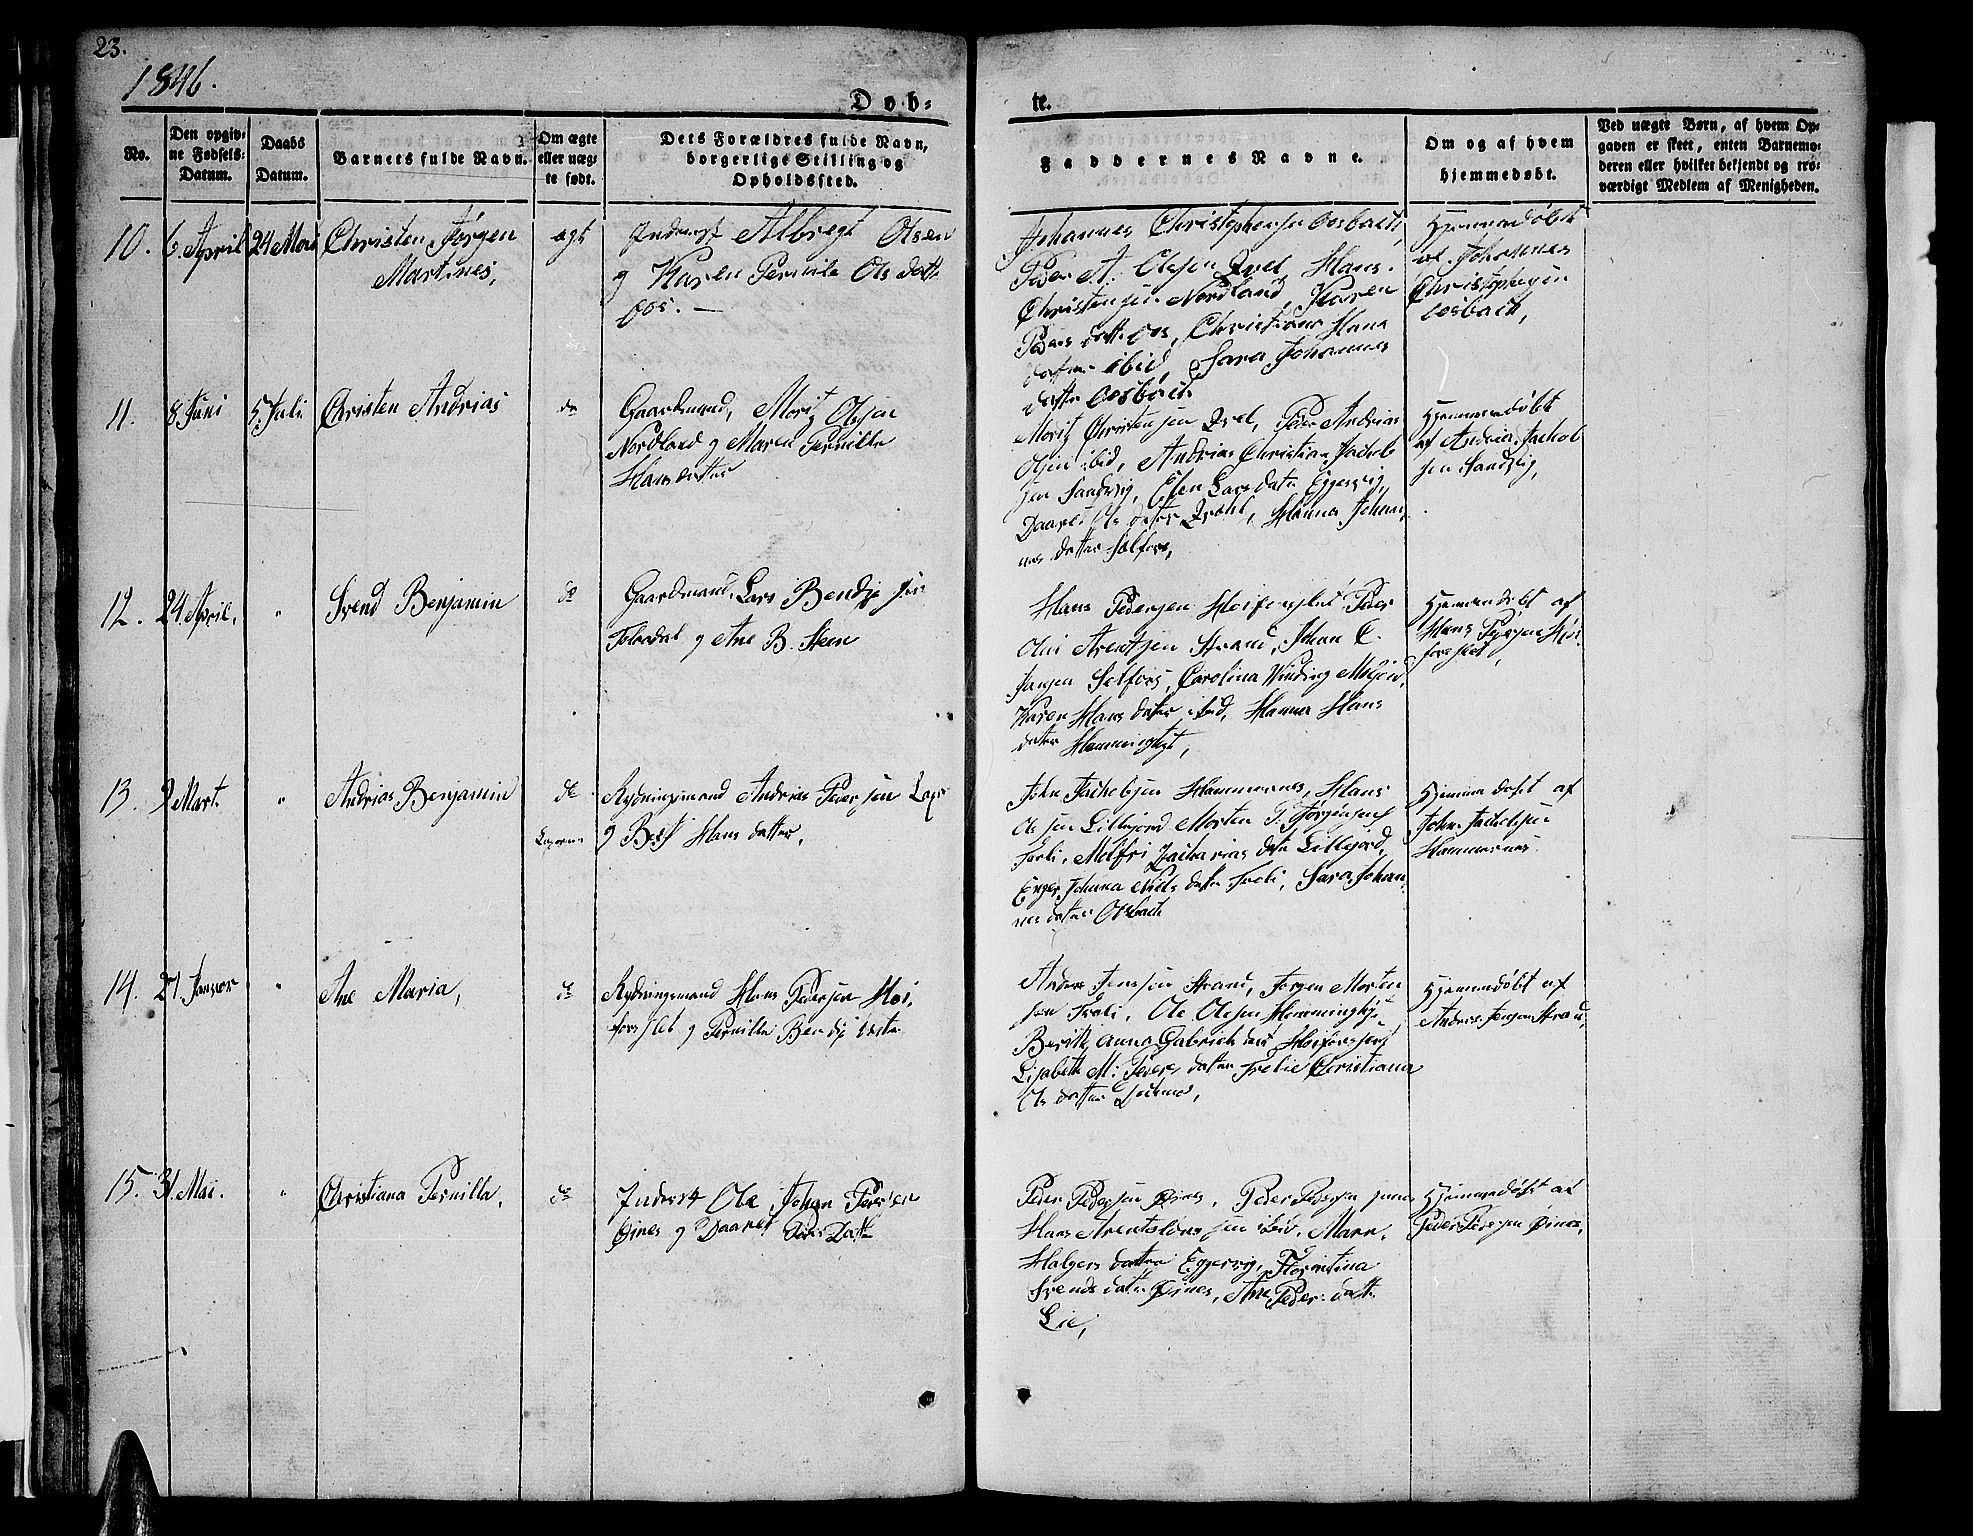 23.
1846.
Døb-
te.
No.
Den opgiv-
ne Fødsels-
Datum.
Daabs
Datum.
Barnets fulde Navn.
Om ægte
eller uæg-
te født.
Dets Forældres fulde Navn,
borgerlige Stilling og
Opholdssted.
Faddernes Navne.
Om og af hvem
hjemmedøbt.
Ved uægte Børn, af hvem Op-
gaven er skeet, enten Barnemo-
deren eller hvilket bekjendt og tro-
værdigt Medlem af Menigheden.
10. 6. April 24 Mai Christen Jørgen
Martines,
ægt
Inderst Albregt Olsen
og Karen Pernile Ols datt
Oos. —
Johannes Christophersen Oosbach,
Peder A: Olsen Hans
Christensen Nordland, Karen
Peders datt Oos, Christiana Hans
datter ibid, Sara Johannes
datter Oosbach
Hjemmedøbt
af Johannes
Christophersen
Oosbach,
11. 8 Juni 5. Juli Christen Andrias
do
Gaardmand, Moritz Olsen
Nordland og Maren Pernille
Hansdatter
Moritz Christensen Peder Andrias
Olsen ibid, Andrias Christian Jacob
sen Sandvig, Elen Lars datr Eggesvig,
Ols datter Hanna Johan
nes datter Selfors,
Hjemmedøbt
af Andrias Jackob
sen Sandvig,
12. 24 April. " Svend Benjamin
do
Gaardmand, Lars Bendix sen
og Ane B. Steen
Hans Pedersen Høiforslet Peder
Olai Arentsen Strand, Johan C.
Jansen Selfors, Carolina Winding
Karen Hans datter ibid, Hanna Hans
datter
Hjemmedøbt af
Hans Pedersen Høi-
forslet,
13. 9 Mart. " Andrias Benjamin
do
Rydningsmand Andrias Pedersen
og Hans datter,
John Jackobsen Hammernes, Hans
Olsen Lillefjord Morten P. Jørgensen
Zacharias datr Lillefjord,
Johanna Niels datter Sara Johan
nes datter Osbach
Hjemmedøbt af
John Jackobsen
Hammernes.
14. 27 Januar " Ane Maria,
do
Rydningsmand Hans Pedersen Høi
forslet og Pernille Bendix datter
Anders Jensen Strand, Jørgen Morten
sen Ole Olsen
Berith Anna Gabriels datr Høiforslet
Lisabeth M: Peders datter Christiana
Ols datter
Hjemmedøbt af
Anders Jensen Strand,
15. 31. Mai. " Christiana Pernilla,
do
Inderst Ole Johan Pedersen
Øines og Daaret Peders Datt
Peder Pedersen Øines, Peder Pedersen junr
Hans ibid, Maren
Holgers datter Eggesvig, Florentina
Svends datter Øines, Ane Peders datt
Lie,
Hjemmedøbt af
Peder Pedersen Øines,